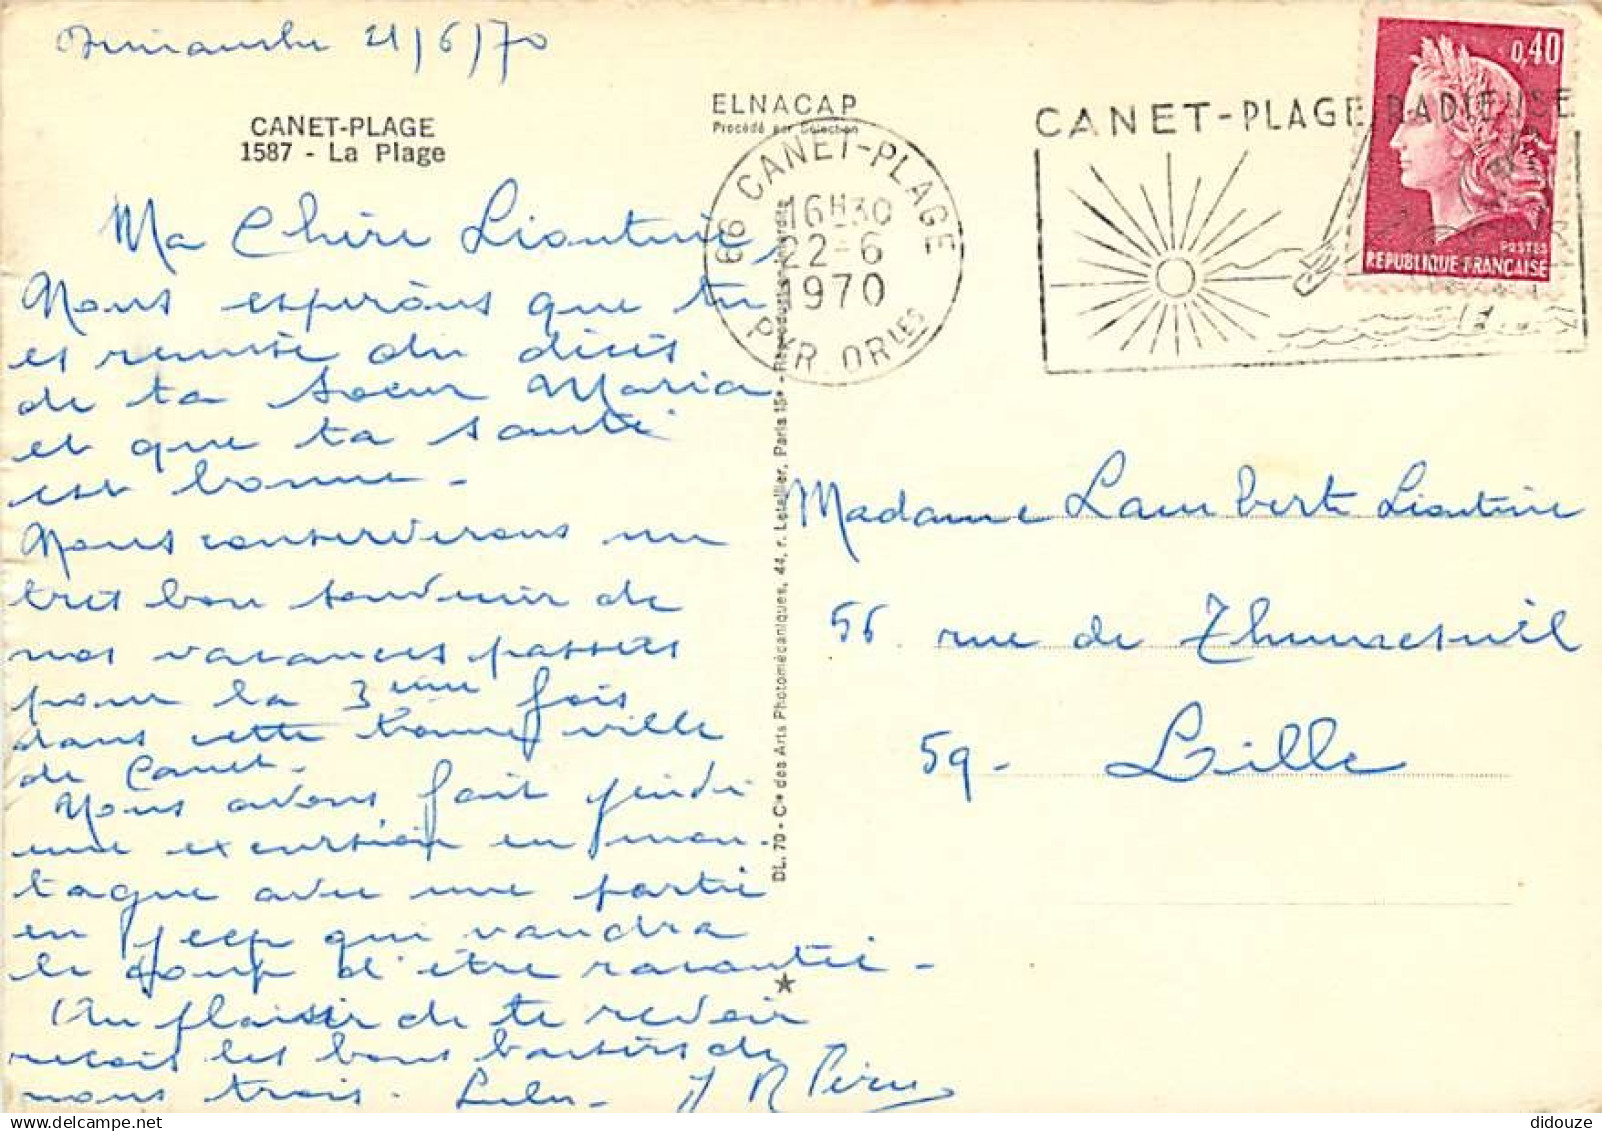 Dimanche 21/6/70
CANET-PLAGE
1587 - La Plage
Ma Chère Léontine,
Nous espérons que tu
es remise du décès
de ta soeur Maria
et que ta santé
est bonne -
Nous conserverons un
très bon souvenir de
nos vacances passées
pour la 3ème fois
dans cette bonne ville
de Canet.
Nous avons fait jeudi
une excursion en mon-
tagne avec une partie
en jeep qui vaudra
le coup d'être racontée -
Au plaisir de te revoir
reçois les bons baisers de
nous trois. Lulu -
ELNACAP
Procédé par Sélection
66 CANET-PLAGE
16H30
22-6
1970
PYR. ORLES
CANET-PLAGE RADIEUSE
0,40
POSTES
REPUBLIQUE FRANÇAISE
DL. 70 - Cie des Arts Photomécaniques, 44, r. Letellier, Paris 15e - Reproduction interdite
Madame Lambert Léontine
56 rue de
59 - Lille
didouze / delcampe.net